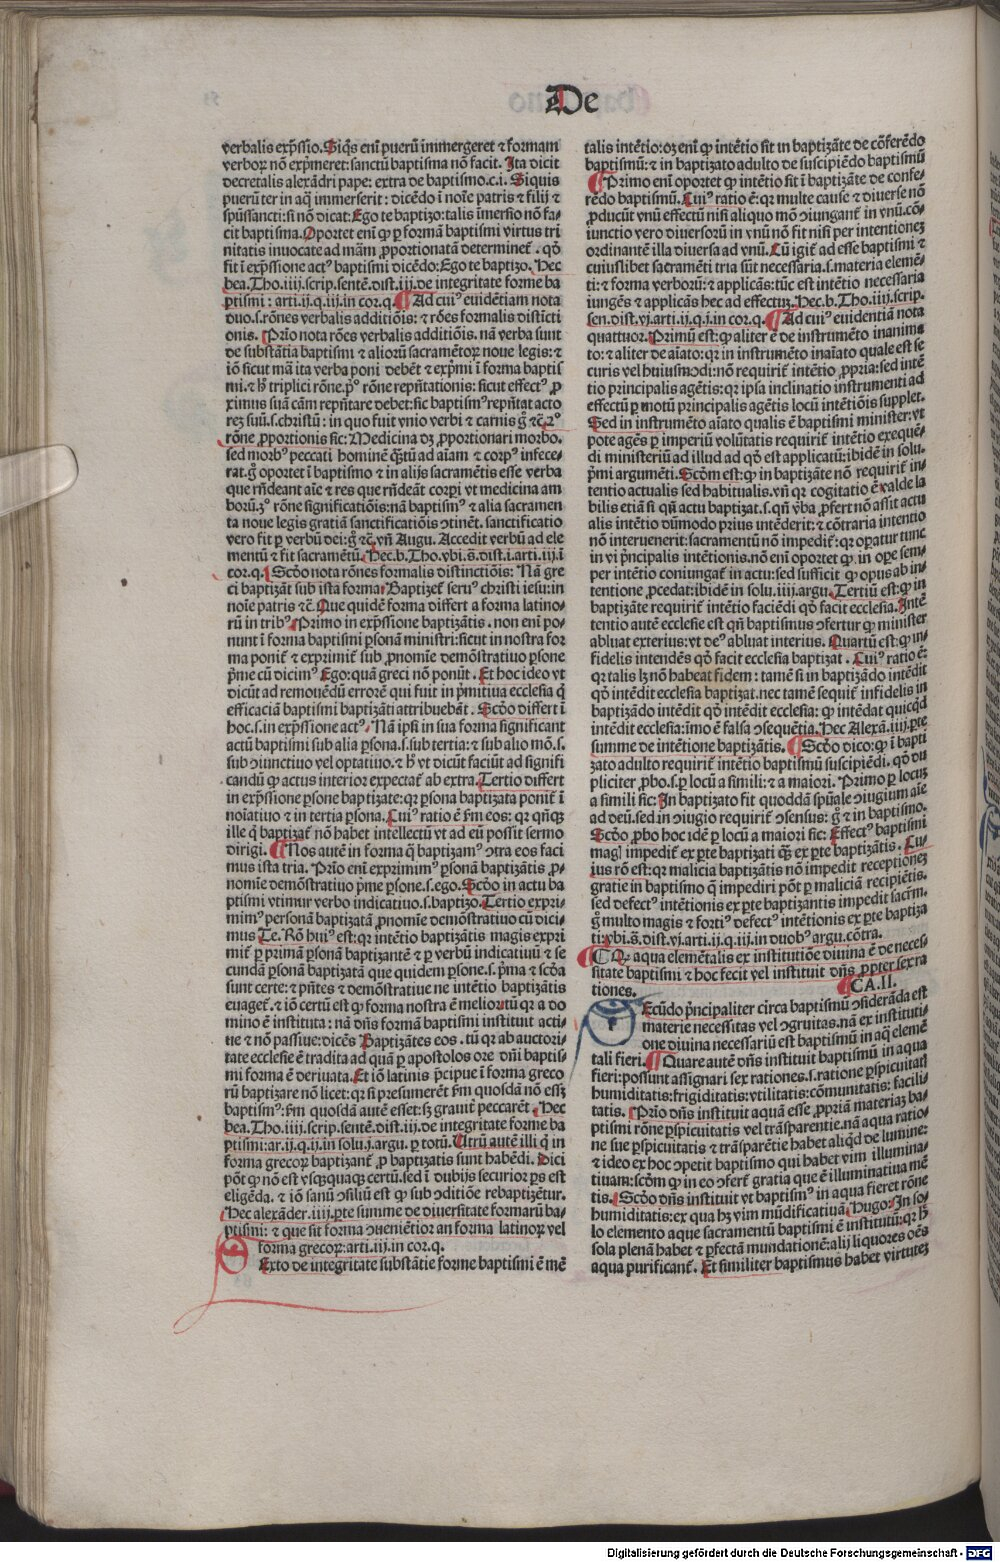 De
verbalis exp̃ssio. Siq̃s eni̅ pueru̅ immergeret ⁊ formam
verboꝝ nõ exp̃meret: sanctu̅ baptisma nõ facit. Ita dicit
decretalis alexa̅dri pape: extra de baptismo.c.i. Siquis
pueru̅ ter in aq̃ immerserit: dice̅do i̅ noi̅e patris ⁊ filij ⁊
sp̃ussancti: si nõ dicat: Ego te baptizo: talis i̅mersio nõ fa-
cit baptisma. Oportet eni̅ ꝙ ꝑ formã baptismi virtus tri
nitatis inuocate ad mãm ꝓportionatã determinet̃. qđ
fit i̅ exp̃ssione actꝰ baptismi dice̅do: Ego te baptizo. Hec
bea. Tho. iiij. scrip. sente̅. dist. iij. de integritate forme ba
ptismi: arti. ij. q. iij. in cor. q. Ad cuiꝰ euide̅tiam nota
duo. s. rões verbalis additiõis: ⁊ rões formalis disti̅cti
onis. Prĩo nota rões verbalis additiõis. nã verba sunt
de substa̅tia baptismi ⁊ alioru̅ sacrame̅toꝝ noue legis: ⁊
iõ sicut mã ita verba poni debe̅t ⁊ exp̃mi i̅ forma baptis
mi. ⁊ hͦ triplici rõne. pͦ rõne rep̃nta̅tionis: sicut effectꝰ ꝓ
ximus suã cãm rep̃ntare debet: sic baptismꝰ rep̃ntat acto
rez suu̅. s. christu̅: in quo fuit vnio verbi ⁊ carnis g̃ ⁊c̃. 2ͦ
rõne ꝓportionis sic: Medicina dꝫ ꝓportionari morbo.
sed morbꝰ peccati homine̅ q̃ntu̅ ad aĩam ⁊ corpꝰ infece-
rat. g̃ oportet i̅ baptismo ⁊ in alijs sacrame̅tis esse verba
que rñdeant aĩe ⁊ res que rñdeãt corpi vt medicina am
boru̅. 3ͦ rõne significatiõis: nã baptismꝰ ⁊ alia sacramen
ta noue legis gratiã sanctificatiõis ↄtine̅t. sanctificatio
vero fit ꝑ verbu̅ dei: g̃ ⁊c̃. vñ Augu. Accedit verbu̅ ad ele
mentu̅ ⁊ fit sacrame̅tu̅. Hec. b. Tho. vbi. s̃. dist. i. arti. iij. i̅
cor. q. Scðo nota rõnes formalis distinctiõis: Nã gre
ci baptiza̅t sub ista forma: Baptizet̃ seruꝰ christi iesu: in
noĩe patris ⁊c̃. Que quide̅ forma differt a forma latino-
ru̅ in tribꝰ. Primo in exp̃ssione baptiza̅tis. non eni̅ po-
nunt i̅ forma baptismi ꝑsonã ministri: sicut in nostra for
ma ponit̃ ⁊ exprimit̃ sub ꝓnomi̅e demõstratiuo ꝑsone
p̃me cu̅ dicimꝰ Ego: quã greci nõ ponu̅t. Et hoc ideo vt
dicu̅t ad remoue̅du̅ errore̅ qui fuit in p̃mitiua ecclesia q̃
efficaciã baptismi baptiza̅ti attribueba̅t. Scðo differt i̅
hoc. s. in exp̃ssione actꝰ. Nã ip̃i in sua forma significant
actu̅ baptismi sub alia ꝑsona. s. sub tertia: ⁊ sub alio mõ. s.
sub ↄiunctiuo vel optatiuo. ⁊ hͦ vt dicu̅t faciu̅t ad signifi
candu̅ ꝙ actus interior expectat̃ ab extra. Tertio differt
in exp̃ssione ꝑsone baptizate: qꝛ ꝑsona baptizata ponit̃ i̅
noĩatiuo ⁊ in tertia ꝑsona. Cuiꝰ ratio e̅ fm̃ eos: qꝛ qñqꝫ
ille q̃ baptizat̃ nõ habet intellectu̅ vt ad eu̅ possit sermo
dirigi. Nos aute̅ in forma q̃ baptizamꝰ ↄtra eos faci
mus ista tria. Prĩo eni̅ exprimimꝰ ꝑsonã baptiza̅tis ꝓ-
nomi̅e demõstratiuo p̃me ꝑsone. s. ego. Scðo in actu ba
ptismi vtimur verbo indicatiuo. s. baptizo. Tertio expri-
mimꝰ personã baptizatã ꝓnomi̅e demõstratiuo cu̅ dici-
mus Te. Rõ huiꝰ est: qꝛ inte̅tio baptiza̅tis magis expri
mit̃ ꝑ primã ꝑsonã baptizantẽ ⁊ ꝑ verbu̅ indicatiuu̅ ⁊ se
cundã ꝑsonã baptizatã que quidem ꝑsone. s. p̃ma ⁊ scða
sunt certe: ⁊ p̃ntes ⁊ demõstratiue ne inte̅tio baptiza̅tis
euaget̃. ⁊ iõ certu̅ est ꝙ forma nostra e̅ melior: tu̅ qꝛ a do
mino e̅ instituta: nã dñs formã baptismi instituit acti-
ue ⁊ nõ passiue: dice̅s Baptiza̅tes eos. tu̅ qꝛ ab auctori-
tate ecclesie e̅ tradita ad quã ꝑ apostolos ore dñi baptis-
mi forma e̅ deriuata. Et iõ latinis p̃cipue i̅ forma greco
ru̅ baptizare nõ licet: qꝛ si presumere̅t fm̃ quosdã nõ essꝫ
baptismꝰ: fm̃ quosdã aute̅ esset: sꝫ grauit̃ peccare̅t. Hec
bea. Tho. iiij. scrip. sente̅. dist. iij. de integritate forme ba
ptismi: ar. ij. q. ij. in solu. j. argu. ꝑ totu̅. Utru̅ aute̅ illi q̃ in
forma grecoꝝ baptizant̃ ꝓ baptizatis sunt habe̅di. Dici
põt ꝙ nõ est vsq̃quaqꝫ certu̅. sed i̅ dubijs securior ꝑs est
elige̅da. ⁊ iõ sanu̅ ↄsiliu̅ est ꝙ sub ↄditiõe rebaptize̅tur.
Hec alexa̅der. iiij. ꝑte summe de diuersitate formaru̅ ba-
ptismi: ⁊ que sit forma ↄuenie̅tior an forma latinoꝝ vel
forma grecoꝝ: arti. iij. in cor. q.
Sexto de integritate substa̅tie forme baptismi e̅ me̅
talis inte̅tio: oꝫ eni̅ ꝙ inte̅tio sit in baptiza̅te de cõfere̅do
baptismu̅: ⁊ in baptizato adulto de suscipie̅do baptismu̅
Primo eni̅ oportet ꝙ inte̅tio sit i̅ baptiza̅te de confe-
re̅do baptismu̅. Cuiꝰ ratio e̅: qꝛ multe cause ⁊ diuerse nõ
ꝓducu̅t vnu̅ effectu̅ nisi aliquo mõ ↄiungant̃ in vnu̅. cõ-
iunctio vero diuersoru̅ in vnu̅ nõ fit nisi per intentionez
ordinante̅ illa diuersa ad vnu̅. Cu̅ igit̃ ad esse baptismi ⁊
cuiuslibet sacrame̅ti tria su̅t necessaria. s. materia eleme̅-
ti: ⁊ forma verboru̅: ⁊ applica̅s: tu̅c est inte̅tio necessaria
iunge̅s ⁊ applica̅s hec ad effectuz. Hec. b. Tho. iiij. scrip.
sen. dist. vj. arti. ij. q. i. in cor. q. Ad cuiꝰ euidentiã nota
quattuor. Primu̅ est: ꝙ aliter e̅ de instrume̅to inanima
to: ⁊ aliter de aĩato: qꝛ in instrume̅to inaĩato quale est se
curis vel huiusmodi: nõ requirit̃ inte̅tio ꝓpria: sed inte̅
tio principalis age̅tis: qꝛ ipsa inclinatio instrumenti ad
effectu̅ ꝑ motu̅ principalis age̅tis locu̅ inte̅tiõis supplet.
Sed in instrume̅to aĩato qualis e̅ baptismi minister: vt
pote age̅s ꝑ imperiu̅ volu̅tatis requirit̃ inte̅tio exeque̅-
di ministeriu̅ ad illud ad qđ est applicatu̅: ibide̅ in solu.
p̃mi argume̅ti. Scðm est: ꝙ in baptiza̅te nõ requirit̃ in-
tentio actualis sed habitualis. vñ qꝛ cogitatio e̅ valde la
bilis etiã si qñ actu baptizat. s. qñ ṽba ꝓfert nõ assit actu
alis inte̅tio du̅modo prius inte̅derit: ⁊ cõtraria intentio
nõ interuenerit: sacramentu̅ nõ impedit̃: qꝛ oꝑatur tunc
in vi p̃ncipalis inte̅tionis. nõ eni̅ oportet ꝙ in oꝑe sem-
per inte̅tio coniungat̃ in actu: sed sufficit ꝙ opus ab in-
tentione ꝓcedat: ibide̅ in solu. iiij. argu. Tertiu̅ est: ꝙ in
baptiza̅te requirit̃ inte̅tio facie̅di qđ facit ecclesia. Inte̅
tentio aute̅ ecclesie est qñ baptismus ↄfertur ꝙ minister
abluat exterius: vt deꝰ abluat interius. Quartu̅ est: ꝙ in-
fidelis intende̅s qđ facit ecclesia baptizat. Cuiꝰ ratio e̅:
qꝛ talis lꝫ non habeat fidem: tame̅ si in baptiza̅do inte̅dit
qđ inte̅dit ecclesia baptizat. nec tame̅ sequit̃ infidelis in
baptiza̅do inte̅dit qđ inte̅dit ecclesia: ꝙ inte̅dat quicq̃d
inte̅dit ecclesia: ĩmo e̅ falsa ↄseque̅tia. Hec Alexã. iiij. ꝑte
summe de inte̅tione baptiza̅tis. Scðo dico: ꝙ i̅ bapti
zato adulto requirit̃ inte̅tio baptismu̅ suscipie̅di. qđ du
pliciter ꝓbo. s. ꝑ locu̅ a simili: ⁊ a maiori. Primo ꝑ locuz
a simili sic: In baptizato fit quoddã sp̃uale ↄiugium aĩe
ad deu̅. sed in ↄiugio requirit̃ ↄsensus: g̃ ⁊ in baptismo.
Scðo ꝓbo hoc ide̅ ꝑ locu̅ a maiori sic: Effectꝰ baptismi
magꝭ impedit̃ ex ꝑte baptizati q̃ꝫ ex ꝑte baptiza̅tis. Cu-
ius rõ est: qꝛ malicia baptiza̅tis nõ impedit receptionez
gratie in baptismo q̃ impediri põt ꝑ maliciã recipie̅tis.
sed defectꝰ inte̅tionis ex ꝑte baptizantis impedit sacr̃m.
g̃ multo magis ⁊ fortiꝰ defectꝰ intentionis ex ꝑte baptiza
ti: vbi. s̃. dist. vj. arti. ij. q. iij. in duobꝰ argu. cõtra.
Qꝙ aqua eleme̅talis ex institutiõe diuina e̅ de neces
sitate baptismi ⁊ hoc fecit vel instituit dñs ꝓpter sex ra
tiones. CA. II.
Secu̅do p̃ncipaliter circa baptismu̅ ↄsidera̅da est
materie necessitas vel ↄgruitas. nã ex instituti-
one diuina necessariu̅ est baptismu̅ in aq̃ eleme̅
tali fieri. Quare aute̅ dñs instituit baptismu̅ in aqua
fieri: possunt assignari sex rationes. s. ratione ꝑspicuitat̃
humiditatis: frigiditatis: vtilitatis: cõmunitatis: facili-
tatis. Prĩo dñs instituit aquã esse ꝓpriã materiaz ba-
ptismi rõne ꝑspicuitatis vel tra̅sparentie. nã aqua ratio-
ne sue ꝑspicuitatis ⁊ tra̅spare̅tie habet aliq̃d de lumine:
⁊ ideo ex hoc ↄpetit baptismo qui habet vim illumina-
tiuam: scðm ꝙ in eo ↄfert̃ gratia que e̅ illuminatiua me̅
tis. Scðo dñs instituit vt baptismꝰ in aqua fieret rõne
humiditatis: ex qua hꝫ vim mu̅dificatiuã. Hugo: In so-
lo elemento aque sacramentu̅ baptismi e̅ institutu̅: qꝛ hͦ
sola plenã habet ⁊ ꝑfectã mundatione̅: alij liquores oe̅s
aqua purificant̃. Et similiter baptismus habet virtutez
Digitalisierung gefördert durch die Deutsche Forschungsgemeinschaft - DFG